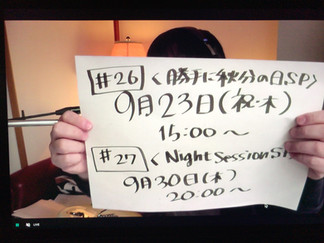 #26 〈勝手に秋分の日SP〉
9月23日(祝・木)
15:00〜
#27 〈Night Session SP
9月30日(木)
20:00〜
LIVE